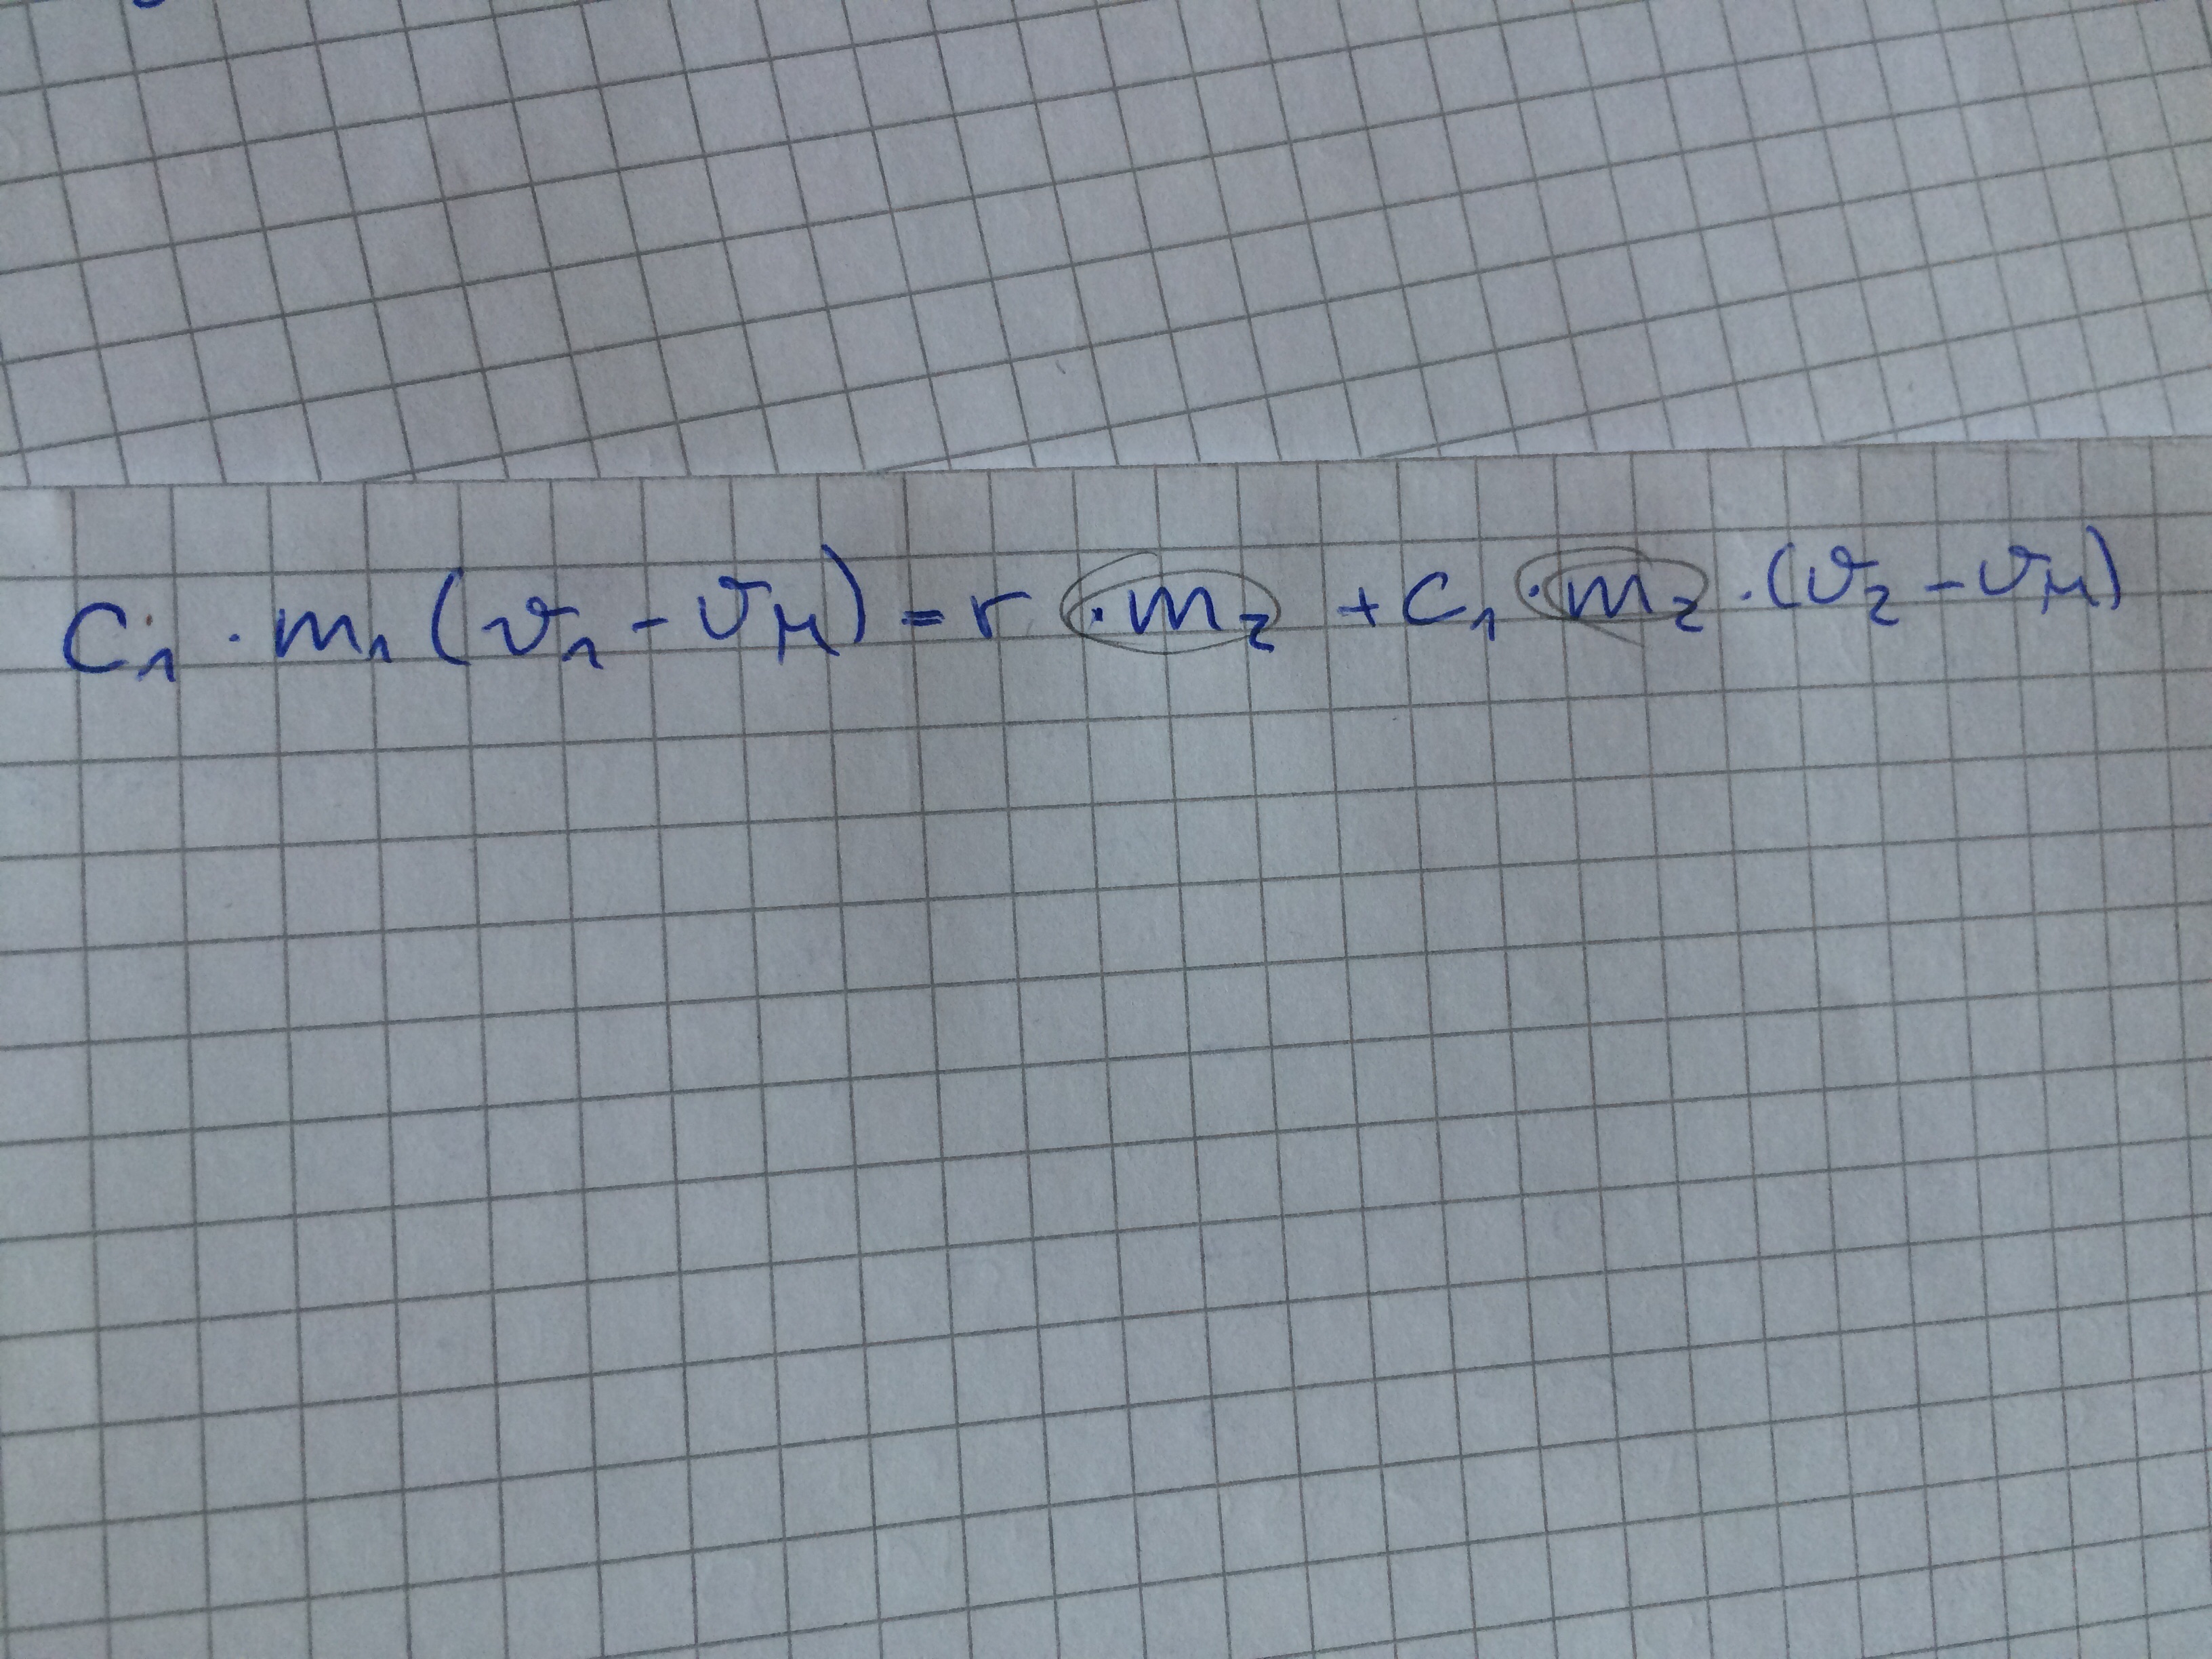 C₁ · m₁ (ϑ₁ - ϑ_M) = r · m₂ + C₁ · m₂ · (ϑ₂ - ϑ_M)